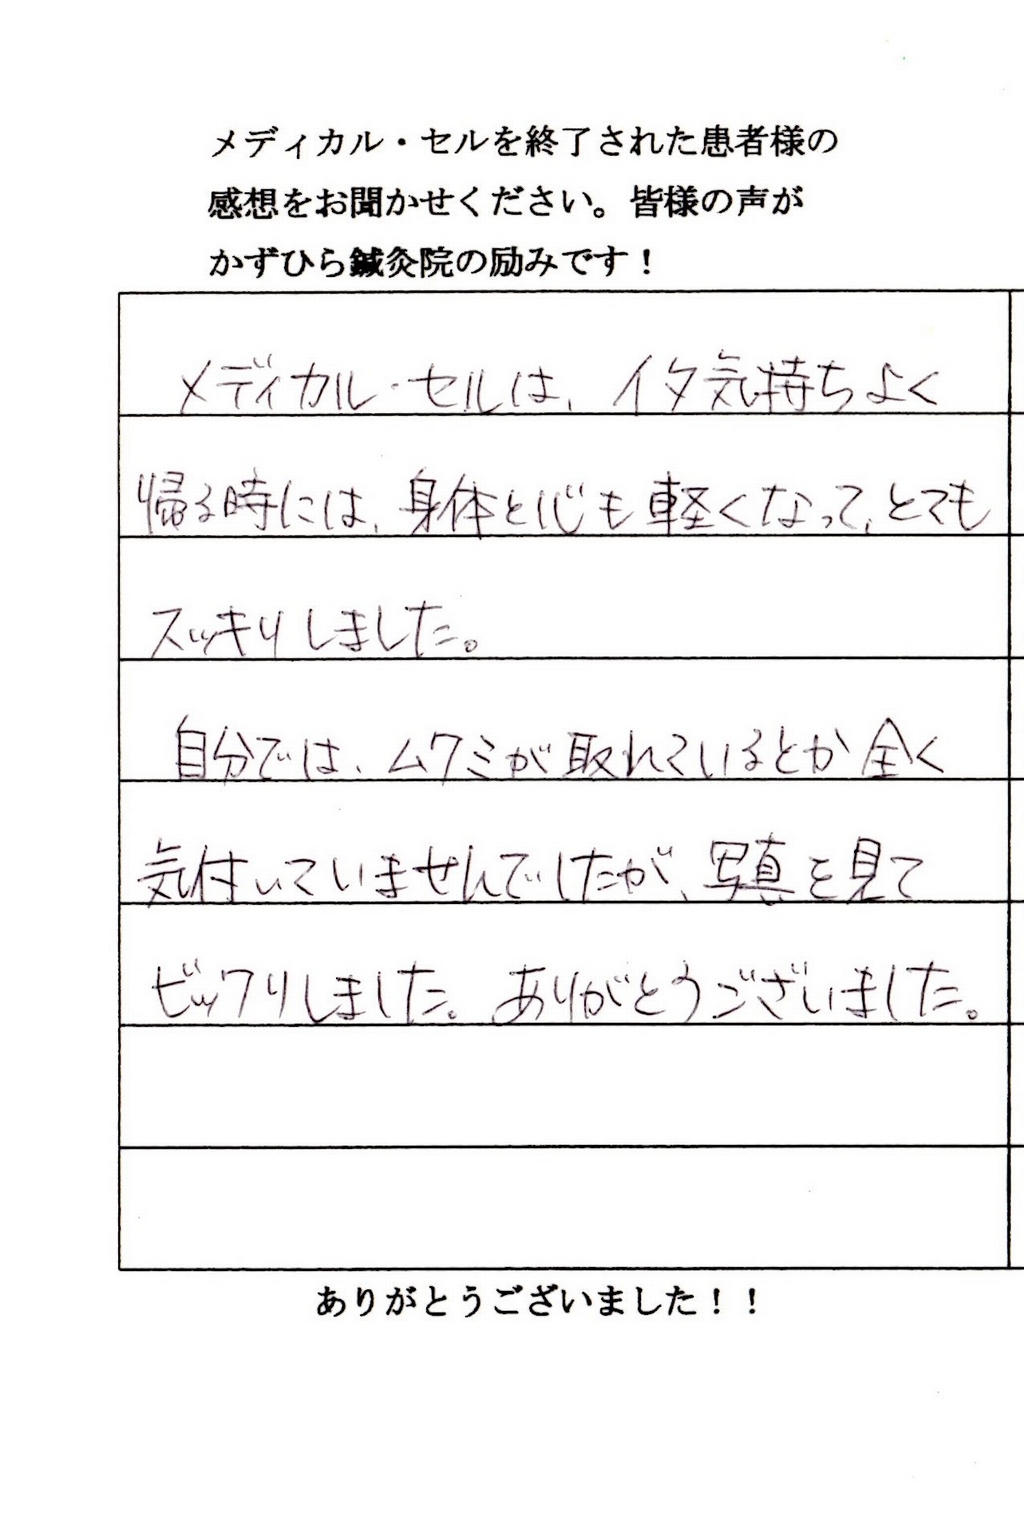 メディカル・セルを終了された患者様の
感想をお聞かせください。皆様の声が
かずひら鍼灸院の励みです！
メディカル・セルは、イタ気持ちよく
帰る時には、身体と心も軽くなって、とても
スッキリしました。
自分では、ムクミが取れているとか全く
気付いていませんでしたが、写真を見て
ビックリしました。ありがとうございました。
ありがとうございました！！